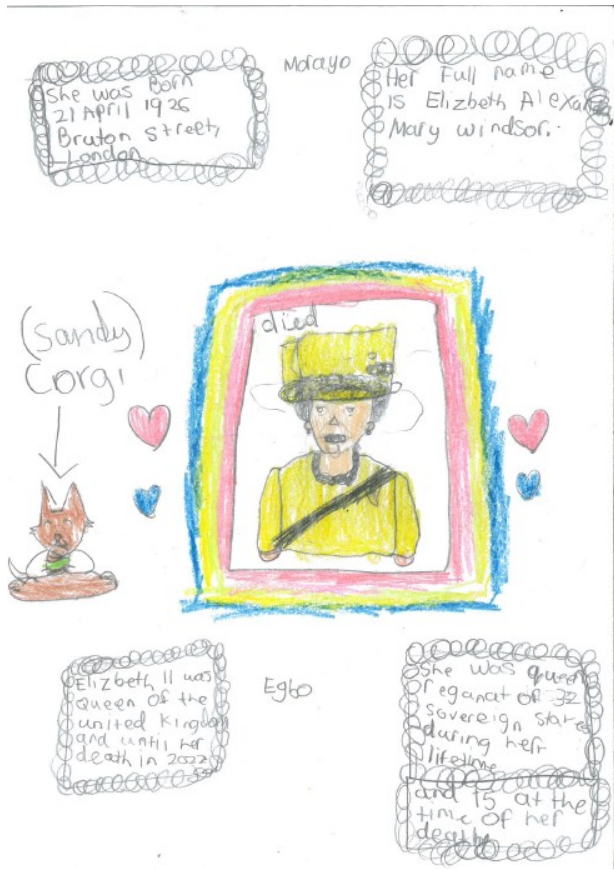 She was Born
21 April 1926
Bruton Street,
London
Morayo
Her Full name
is Elizbeth Alexan
Mary windsor.
died
(sandy)
Corgi
Elizbeth II was
queen of the
united kingdom
and until her
death in 2022
Egbo
She was queen
reganat of 32
sovereign state
during herr
lifetime
and 15 at the
time of her
death